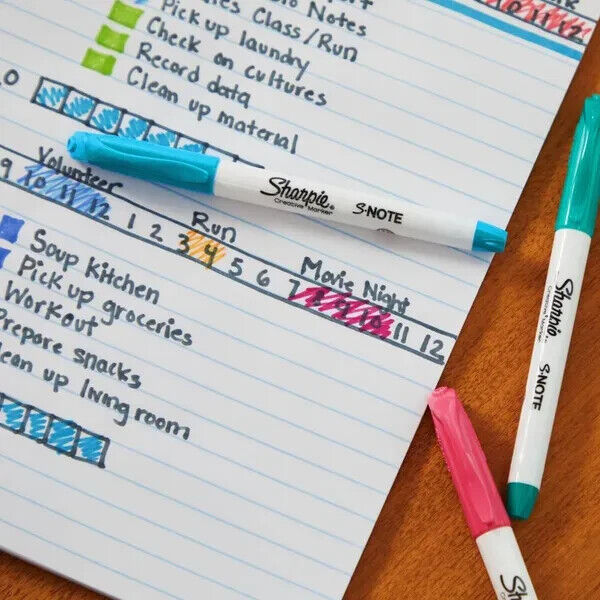 10 11 12
Notes
Class/Run
Pick up laundry
Check on cultures
Record data
Clean up material
0
Volunteer
Run
Movie Night
9 10 11 12 1 2 3 4 5 6 7 8 9 10 11 12
Soup Kitchen
Pick up groceries
Workout
Prepare snacks
Clean up living room
Sharpie®
Creative Marker™
S·NOTE
Sharpie
Creative Marker
S·NOTE
Sharpie